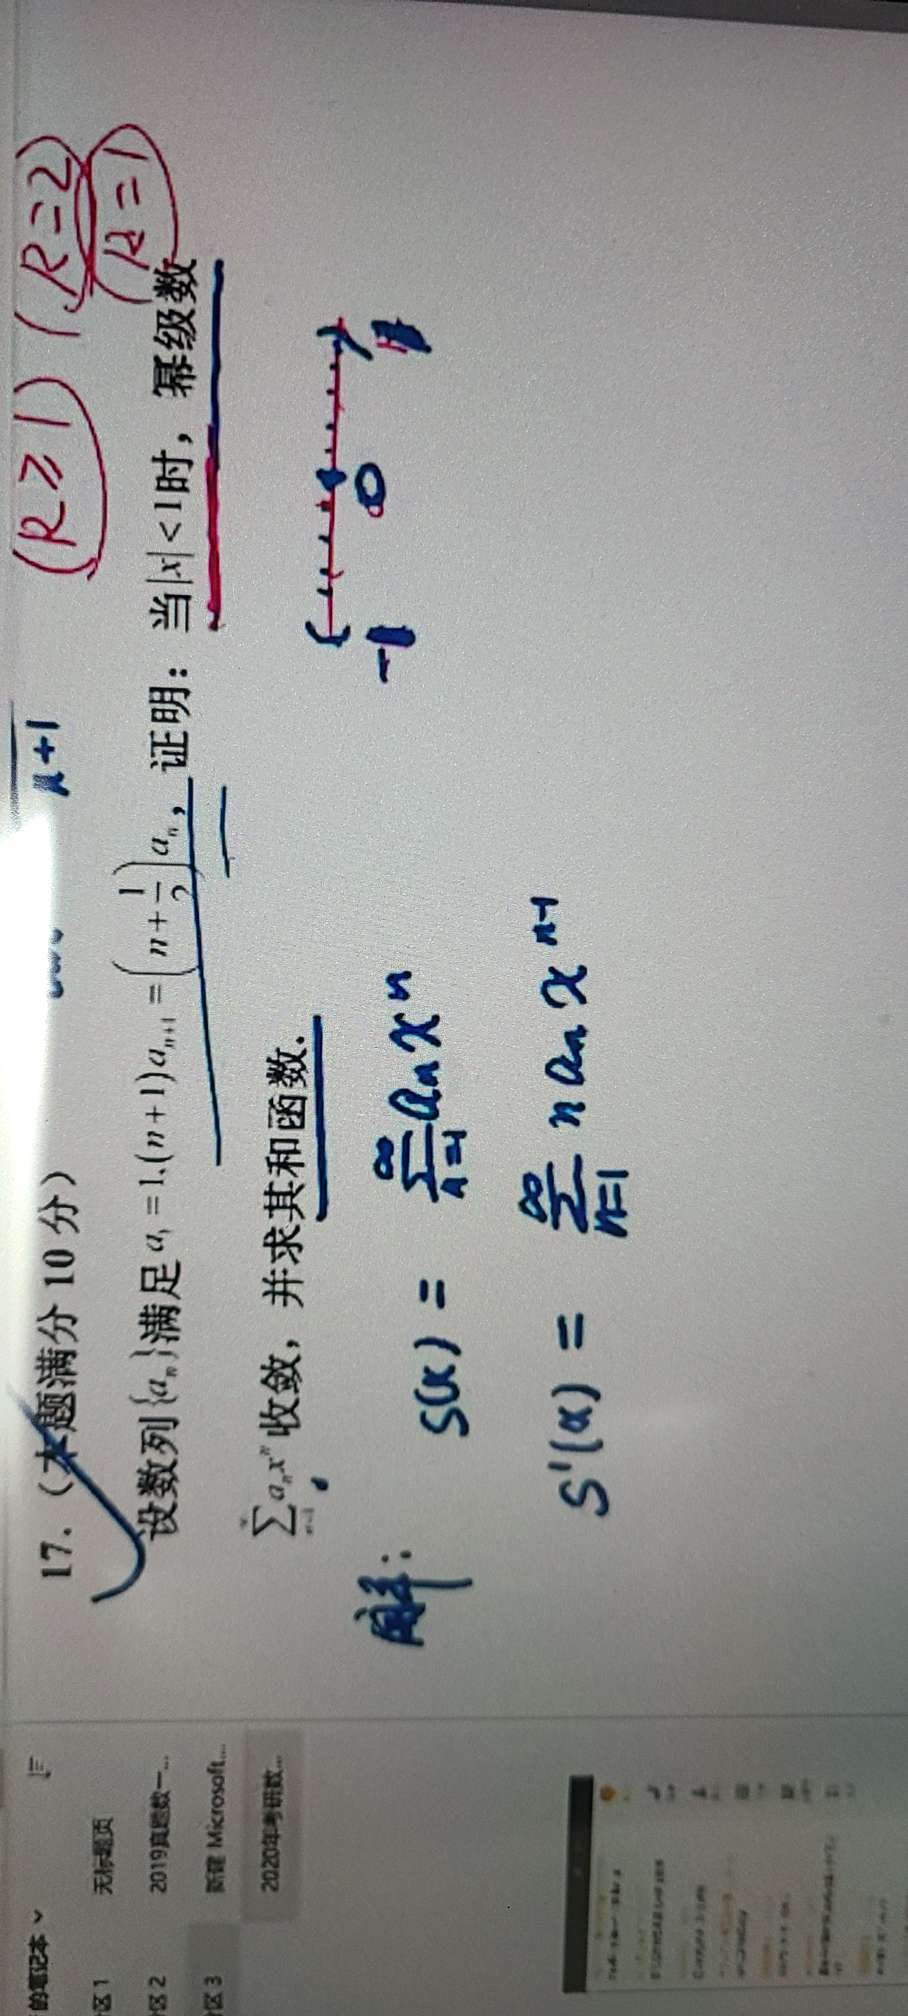 (R≥1) (R=2)
(R=1
n+1
17.（本题满分 10 分）
设数列{aₙ}满足 a₁ = 1,(n+1)aₙ₊₁ = (n + 1/2)aₙ，证明：当|x|<1时，幂级数
∑aₙxⁿ收敛，并求其和函数.
n=1
-1 0 1
解： S(x) = ∑_{n=1}^{∞} aₙxⁿ
S'(x) = ∑_{n=1}^{∞} n aₙ xⁿ⁻¹
的笔记本
无标题页
2019真题数一...
新建 Microsoft...
2020年考研数...
区 1
区 2
区 3